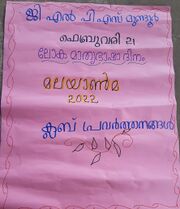 ജി എൽ പി എസ് മുണ്ടൂർ
ഫെബ്രുവരി 21
ലോക മാതൃഭാഷാ ദിനം
മലയാണ്മ
2022
ക്ലബ് പ്രവർത്തനങ്ങൾ